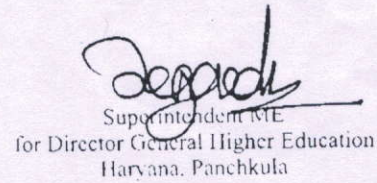 Superintendent ME
for Director General Higher Education
Haryana, Panchkula